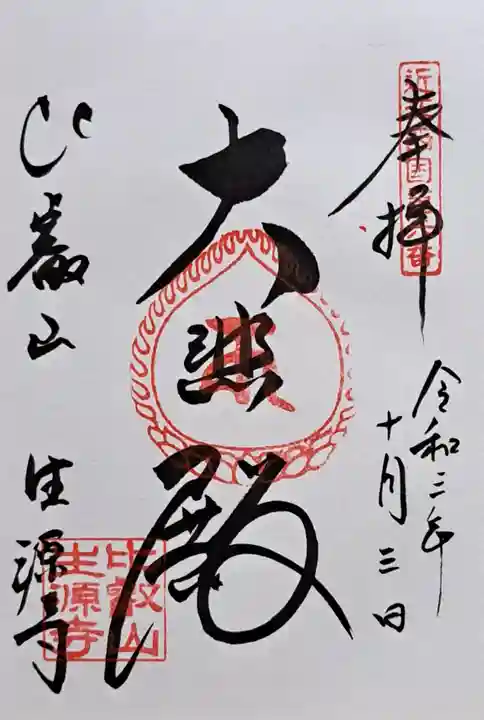 奉拝
令和三年
十月三日
大悲殿
比叡山 生源寺
比叡山
生源寺